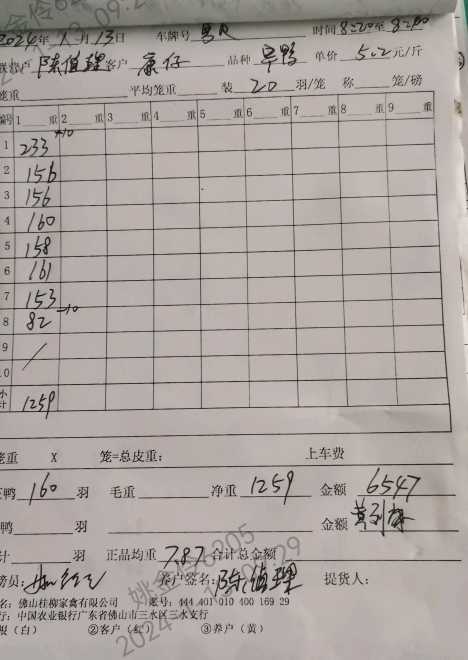 2024年1月13日 车牌号 男R 时间8:20至8:40
养户 陈值理 客户 康仔 品种 旱鸭 单价 5.2元/斤
笼重 平均笼重 装 20 羽/笼 称 笼/磅
编号 1 重 2 重 3 重 4 重 5 重 6 重 7 重 8 重 9 重
1 233 -10
2 156
3 156
4 160
5 158
6 161
7 153
8 82 -10
9 /
0
小计 1259
笼重 X 笼=总皮重: 上车费
正鸭 160 羽 毛重 净重 1259 金额 6547
鸭 羽 金额
计 羽 正品均重 7.87 合计总金额
务员: 养户签名: 陈值理 提货人:
名: 佛山桂柳家禽有限公司 账号: 444 401 010 400 169 29
行: 中国农业银行广东省佛山市三水区三水支行
根(白) ②客户(红) ③养户(黄)
姚金伶6305